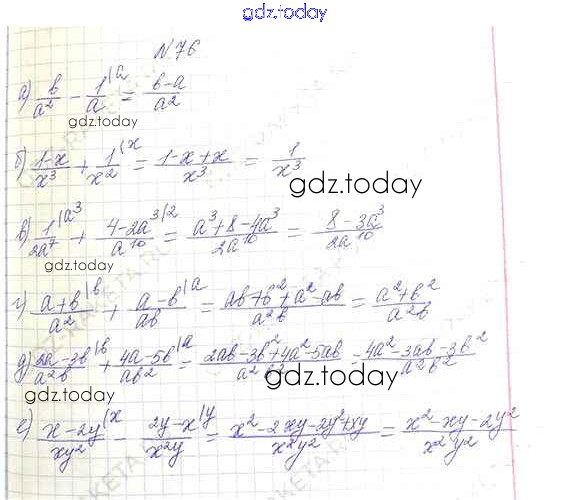 gdz.today
N 76
а) b/a² - 1/a |a = b-a/a²
gdz.today
б) 1-x/x³ + 1/x² |x = 1-x+x/x³ = 1/x³
gdz.today
в) 1/2a⁷ |a³ + 4-2a³/a¹⁰ |2 = a³+8-4a³/2a¹⁰ = 8-3a³/2a¹⁰
gdz.today
г) a+b/a² |b + a-b/ab |a = ab+b²+a²-ab/a²b = a²+b²/a²b
д) 2a-3b/a²b |b + 4a-5b/ab² |a = 2ab-3b²+4a²-5ab/a²b² = 4a²-3ab-3b²/a²b²
gdz.today
gdz.today
е) x-2y/xy² |x - 2y-x/x²y |y = x²-2xy-2y²+xy/x²y² = x²-xy-2y²/x²y²